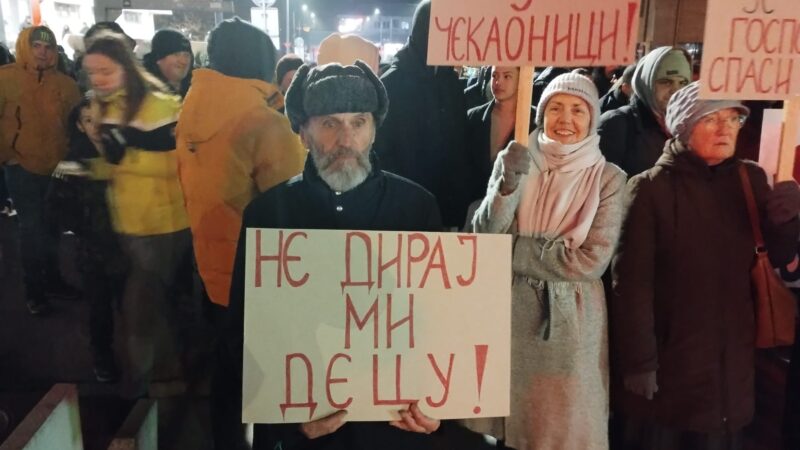 ЧЄКАОНИЦИ!
ЈЄ
ГОСПО
СПАСИ
НЄ ДИРАЈ
МИ
ДЄЦУ!